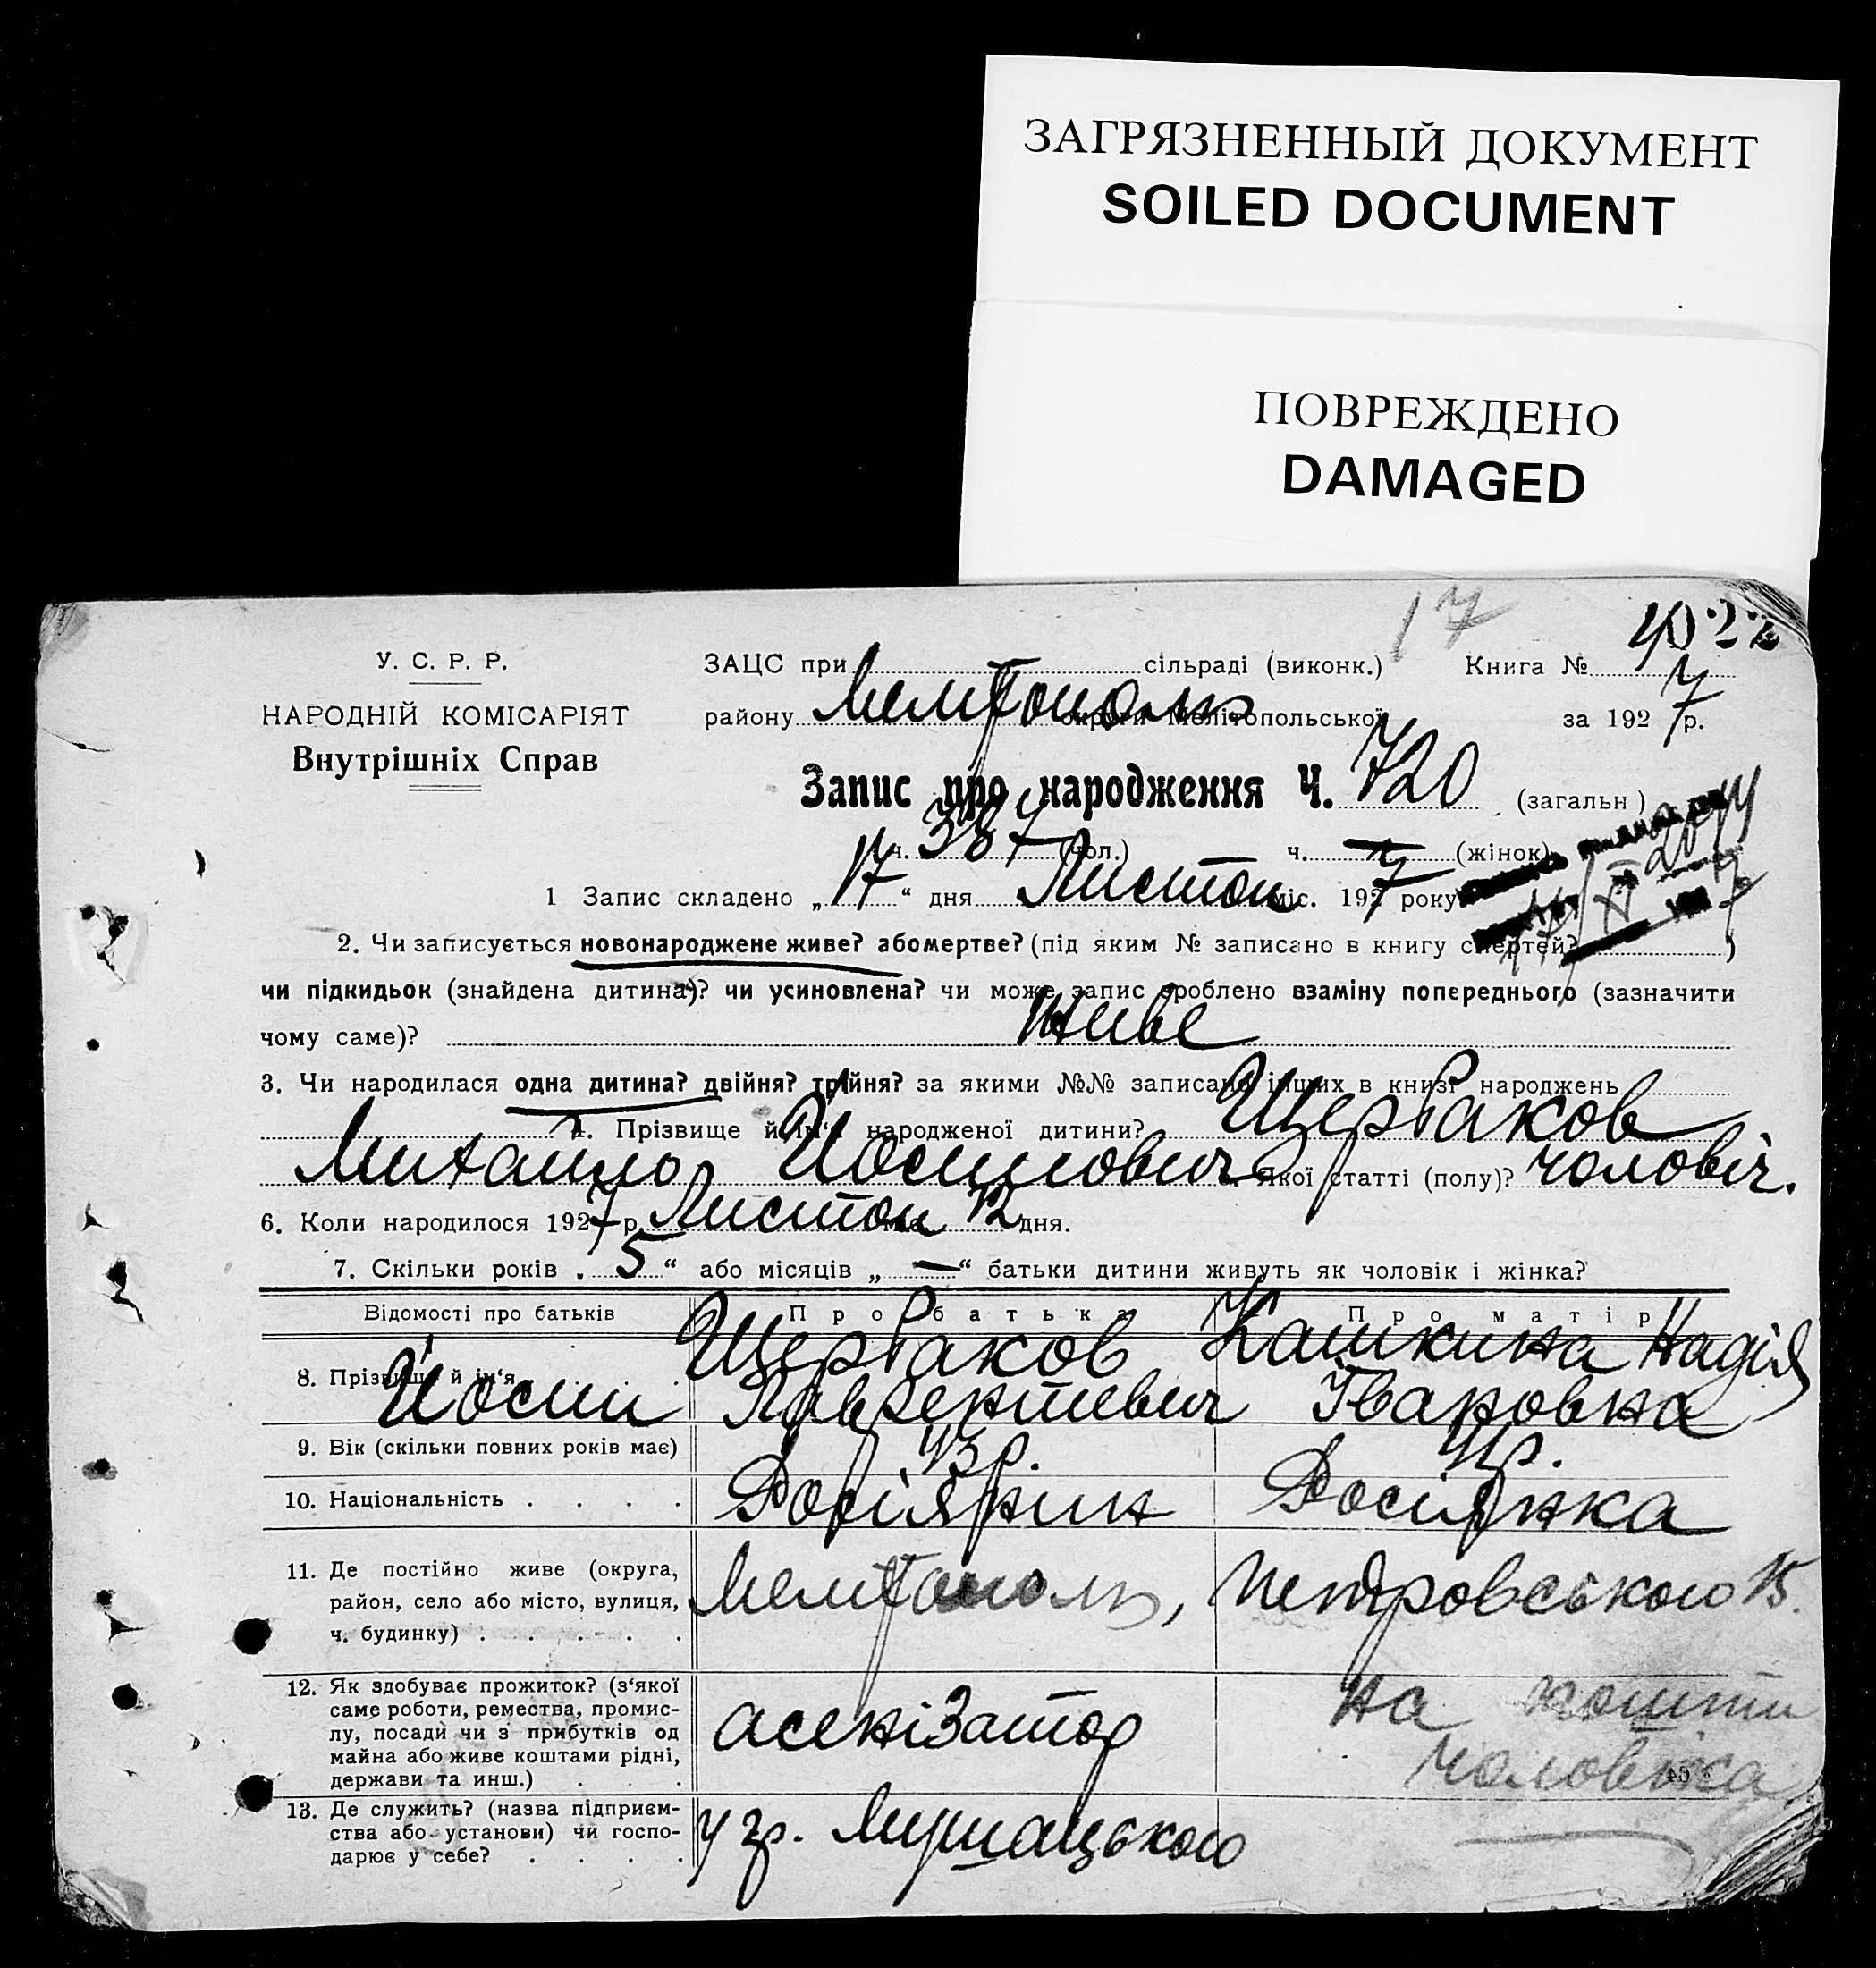 ЗАГРЯЗНЕННЫЙ ДОКУМЕНТ
SOILED DOCUMENT
ПОВРЕЖДЕНО
DAMAGED
17
У. С. Р. Р.
НАРОДНІЙ КОМІСАРІЯТ
Внутрішніх Справ
ЗАЦС при сільраді (виконк.) Книга № 7
району Мелітополь округи Мелітопольської за 1927 р.
Запис про народження Ч. 720 (загальн)
ч. 387 (чол.) ч. — (жінок)
1 Запис складено „17“ дня Листоп міс. 1927 року
2. Чи записується новонароджене живе? або мертве? (під яким № записано в книгу смертей? )
чи підкидьок (знайдена дитина)? чи усиновлена? чи може запис зроблено взаміну попереднього (зазначити
чому саме)? живе
3. Чи народилася одна дитина? двійня? трійня? за якими №№ записано інших в книзі народжень
4. Прізвище й ім‘я народженої дитини? Щербаков
Михайло Йосипович Якої статті (полу)? чоловіч.
6. Коли народилося 1927 р. Листоп міс 12 дня.
7. Скільки років „5“ або місяців „—“ батьки дитини живуть як чоловік і жінка?
Відомості про батьків Про батька Про матір
8. Прізвище й ім‘я Щербаков Йосип Лаврентієвич Кашкина Надія Івановна
9. Вік (скільки повних років має) 43 р. 41 р.
10. Національність Росіянин Росіянка
11. Де постійно живе (округа,
район, село або місто, вулиця,
ч. будинку) Мелітополь, Петровського 15.
12. Як здобуває прожиток? (з‘якої
саме роботи, ремества, промис-
лу, посади чи з прибутків од
майна або живе коштами рідні,
держави та инш.) асенізатор на кошти чоловіка
13. Де служить? (назва підприєм-
ства або установи) чи госпо-
дарює у себе? у гр.